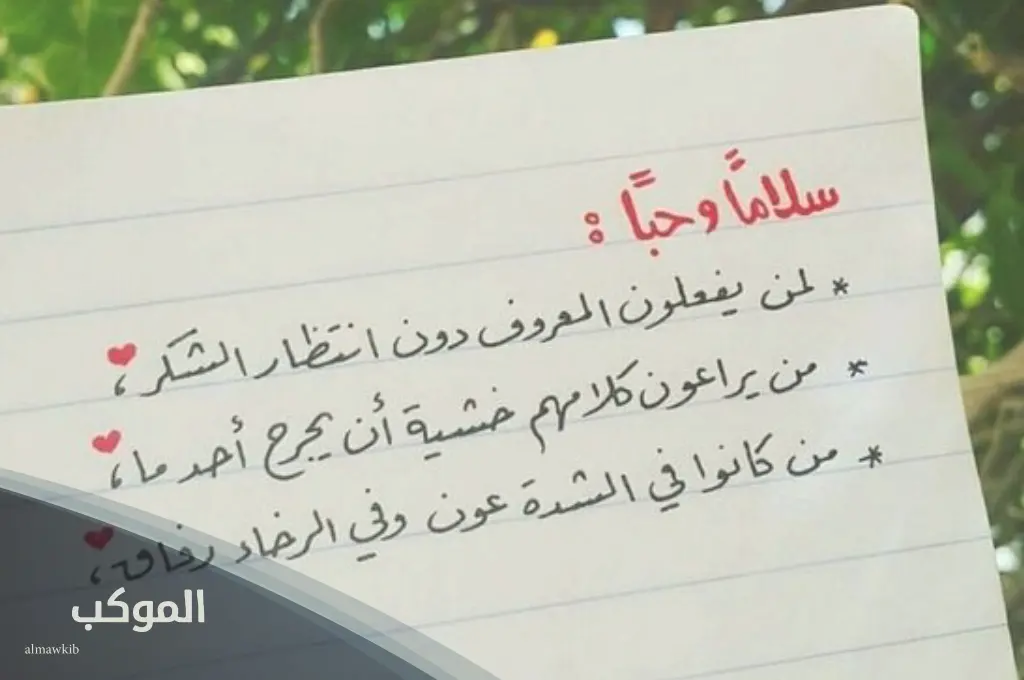 سلامًا وحبًا :
* لمن يفعلون المعروف دون انتظار الشكر ،
* من يراعون كلامهم خشية أن يجرح أحد ما ،
* من كانوا في الشدة عون وفي الرخاء رفاق ،
الموكب
almawkib